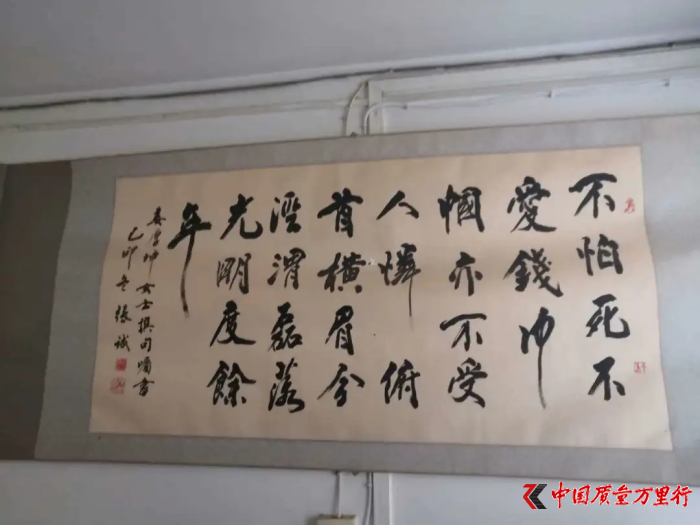 不怕死不
愛錢巾
幗亦不受
人憐俯
首橫眉分
涇渭磊落
光明度餘
年
女士撰句囑書
己卯冬張誠
中国质量万里行